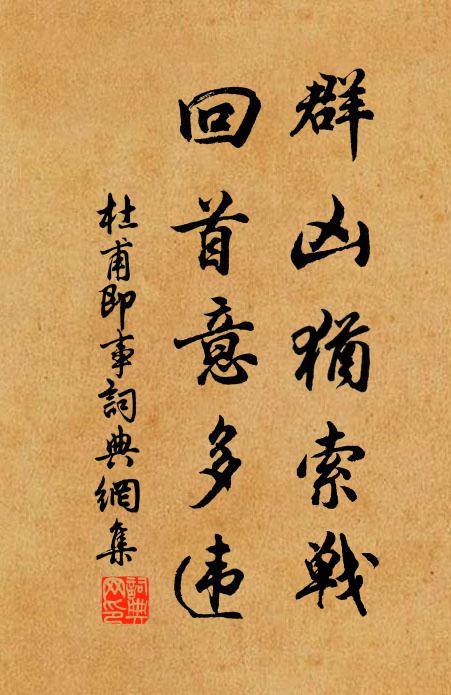 群凶猶索戰
回首意多违
杜甫即事詞典網集
詞典
网印